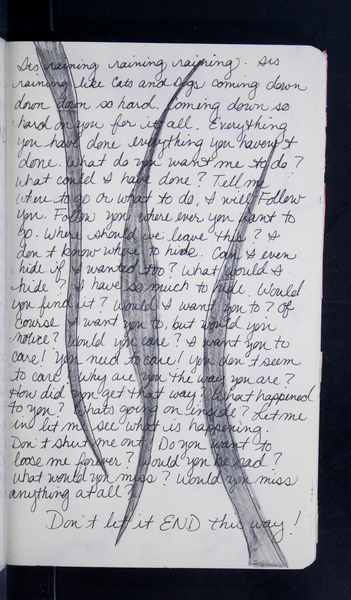 Its raining raining raining. Its
raining like Cats and Dogs coming down
down down so hard. Coming down so
hard on you for it all. Everything
you have done everything you haven't
done. What do you want me to do?
What could I have done? Tell me
where to go or what to do, I will Follow
you. Follow you where ever you want to
go. Where should we leave this? I
don't know where to hide. Can I even
hide if I wanted too? What would I
hide? I have so much to hide. Would
you find it? Would I want you to? Of
course I want you to, but would you
notice? Would you care? I want you to
care! You need to care! You don't seem
to care. Why are you the way you are?
How did you get that way? What happened
to you? Whats going on inside? Let me
in let me see what is happening.
Don't shut me out. Do you want to
loose me forever? Would you be sad?
What would you miss? Would you miss
anything at all?
Don't let it END this way!